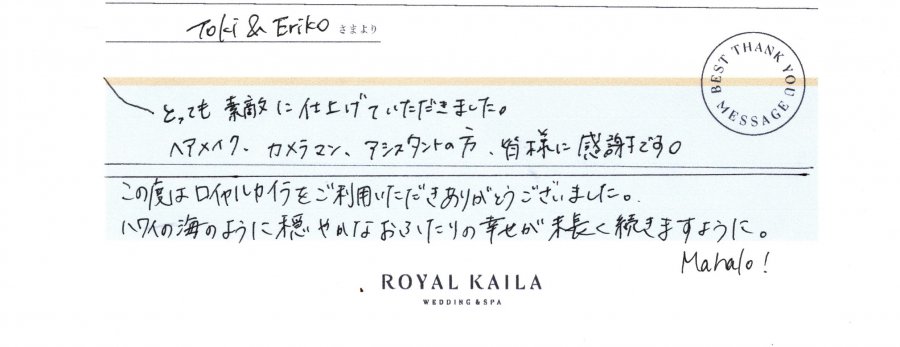 Toki & Eriko さまより
BEST THANK YOU MESSAGE
とっても 素敵に仕上げていただきました。
ヘアメイク、カメラマン、アシスタントの方、皆様に感謝です。
この度はロイヤルカイラをご利用いただきありがとうございました。
ハワイの海のように穏やかなおふたりの幸せが末長く続きますように。
Mahalo!
ROYAL KAILA
WEDDING & SPA